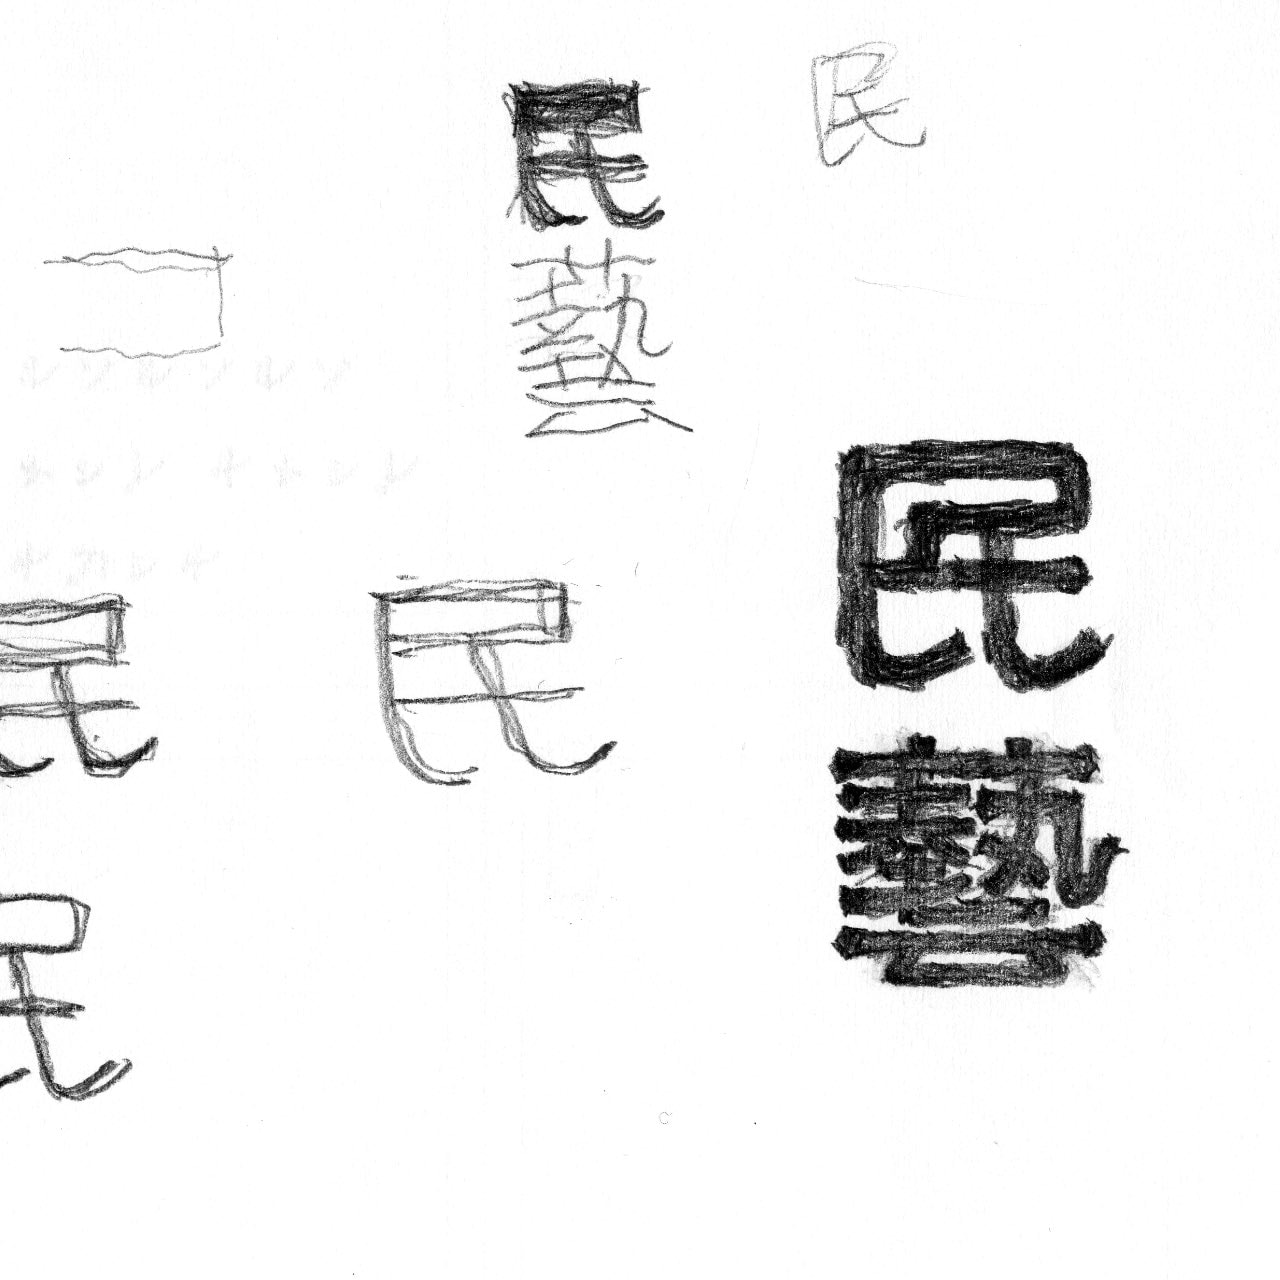 民藝
民
民
民
民藝
民